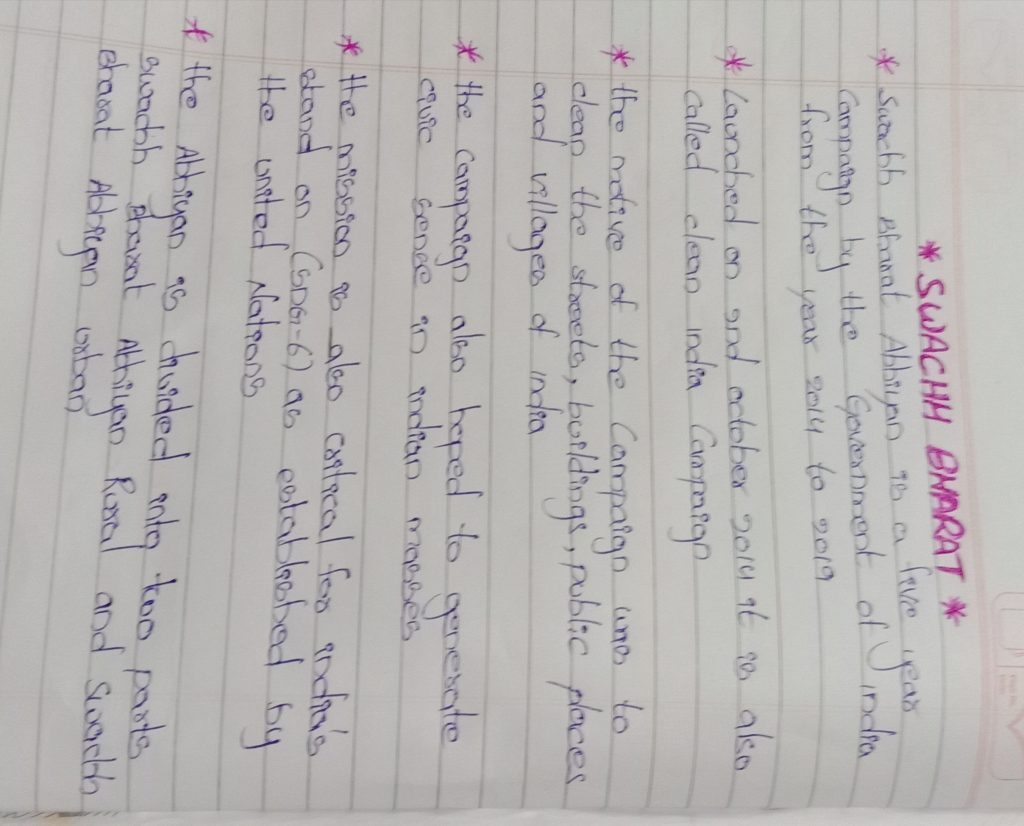 * SWACHH BHARAT *
* Swachh Bharat Abhiyan is a five year
campaign by the Government of india
from the year 2014 to 2019
* Launched on 2nd october 2014 it is also
called clean india Campaign
* the motive of the Campaign was to
clean the streets, buildings, public places
and villages of india
* the campaign also hoped to generate
civic sense in indian masses
* the mission is also critical for india's
stand on (SDG-6) as established by
the united Nations
* the Abhiyan is divided into two parts
swachh Bharat Abhiyan Rural and Swachh
Bharat Abhiyan urban